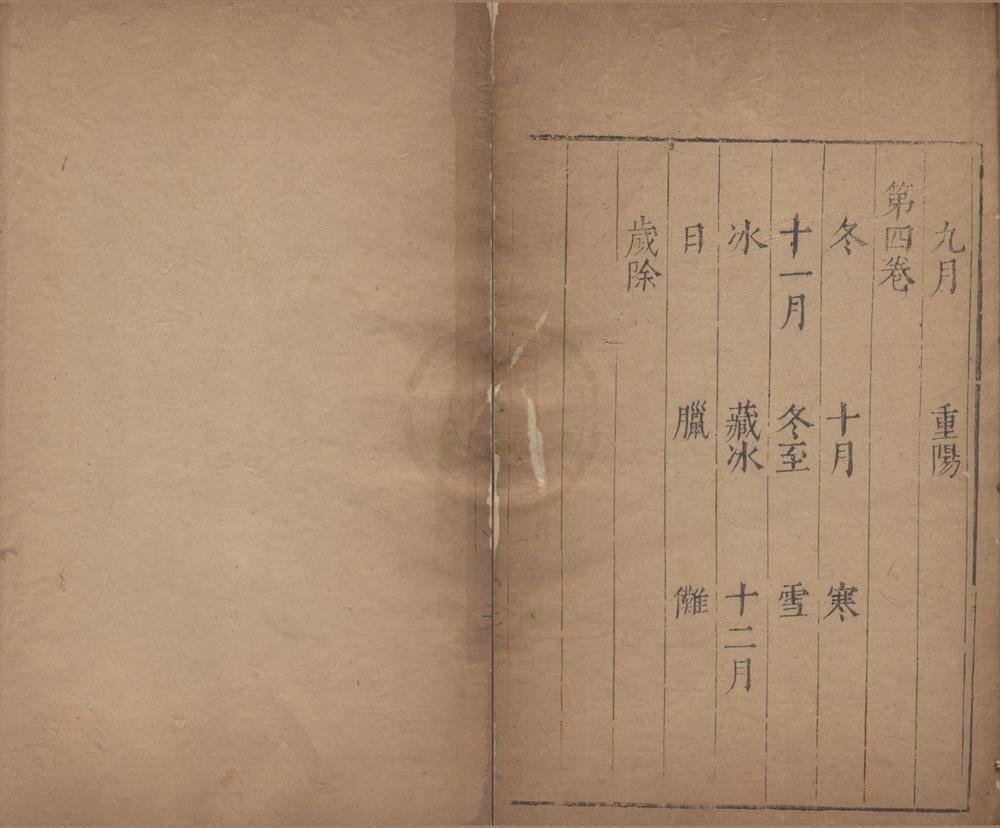 九月 重陽
第四卷
冬 十月 寒
十一月 冬至 雪
冰 藏冰 十二月
日 臘 儺
歲除